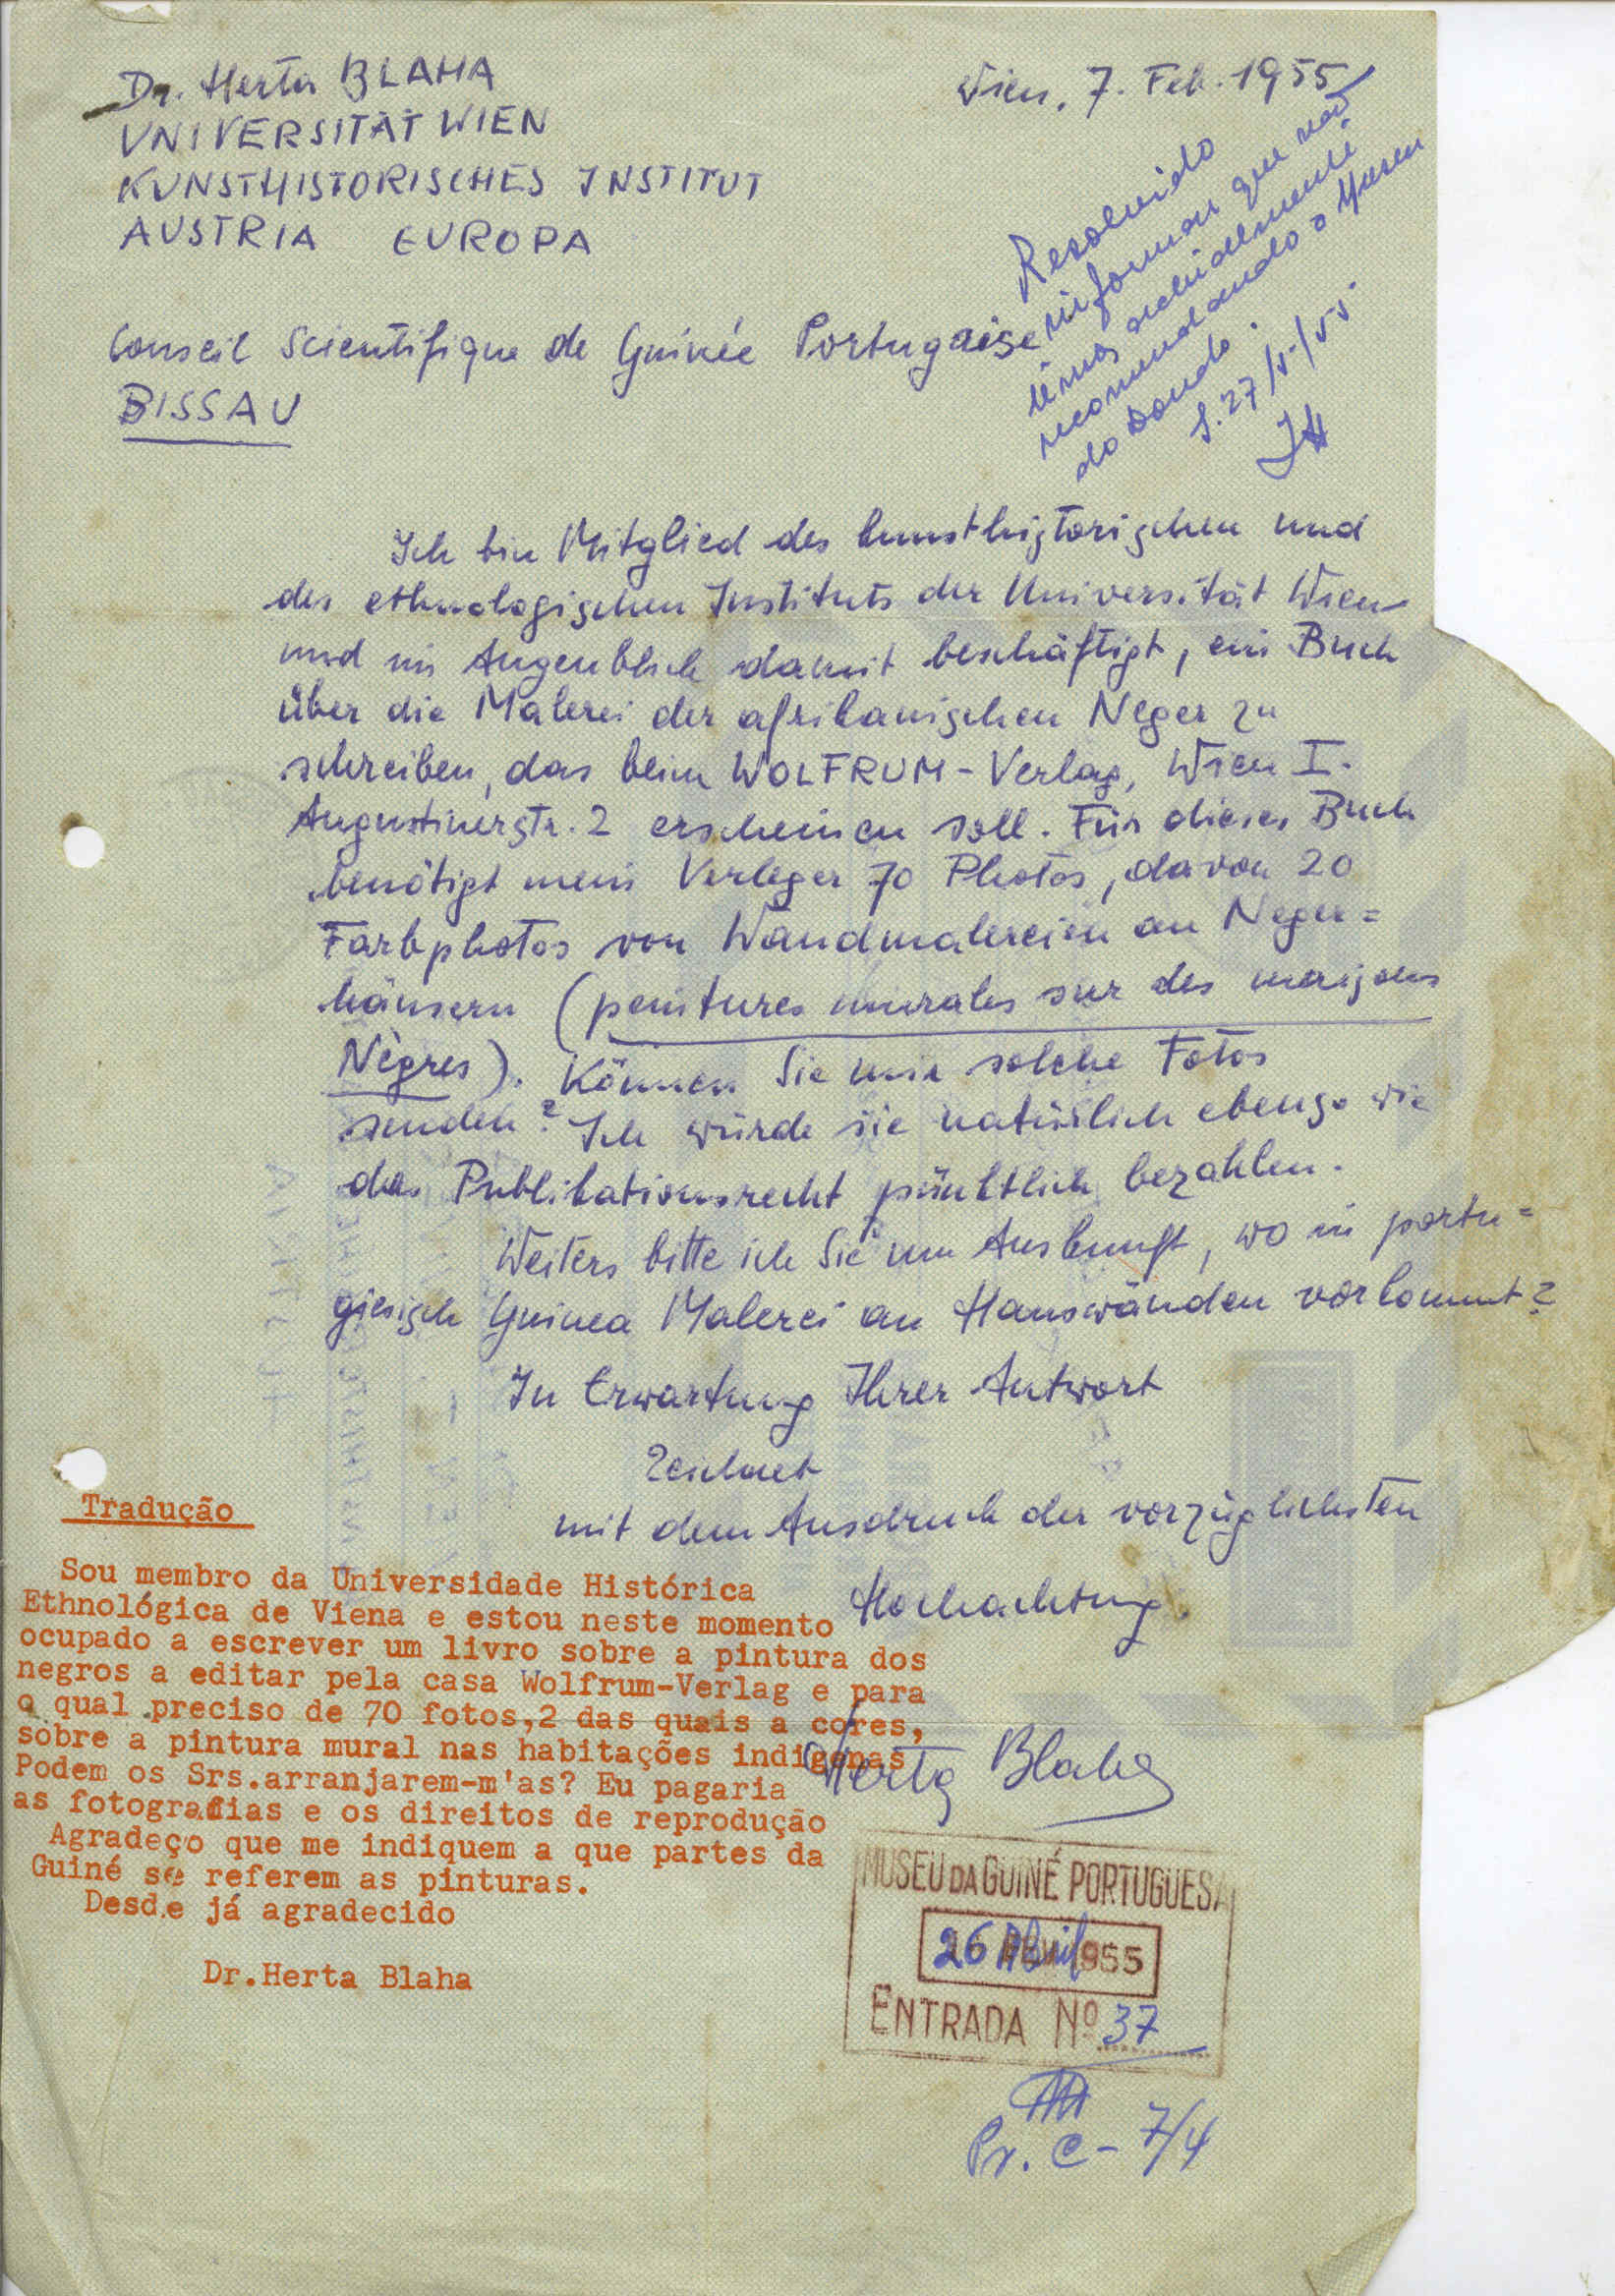 Dr. Herta BLAHA
UNIVERSITÄT WIEN
KUNSTHISTORISCHES INSTITUT
AUSTRIA EUROPA
Wien, 7. Feb. 1955
Resolvido
informar que não
temos
recomendando o Museu
do Dondo.
S. 27/5/55
Conseil Scientifique de Guinée Portugaise
BISSAU
Ich bin Mitglied des kunsthistorischen und
des ethnologischen Instituts der Universität Wien
und im Augenblick damit beschäftigt, ein Buch
über die Malerei der afrikanischen Neger zu
schreiben, das beim WOLFRUM-Verlag, Wien I.
Augustinerstr. 2 erscheinen soll. Für dieses Buch
benötigt mein Verleger 70 Photos, davon 20
Farbphotos von Wandmalereien an Neger=
häusern (peintures murales sur des maisons
Nègres). Können Sie mir solche Fotos
senden? Ich würde sie natürlich ebenso wie
das Publikationsrecht pünktlich bezahlen.
Weiters bitte ich Sie um Auskunft, wo in portu=
giesisch Guinea Malerei an Hauswänden vorkommt?
In Erwartung Ihrer Antwort
zeichnet
mit dem Ausdruck der vorzüglichsten
Hochachtung.
Herta Blaha
Tradução
Sou membro da Universidade Histórica
Ethnológica de Viena e estou neste momento
ocupado a escrever um livro sobre a pintura dos
negros a editar pela casa Wolfrum-Verlag e para
o qual preciso de 70 fotos,2 das quais a cores,
sobre a pintura mural nas habitações indigenas
Podem os Srs.arranjarem-m'as? Eu pagaria
as fotografias e os direitos de reprodução
Agradeço que me indiquem a que partes da
Guiné se referem as pinturas.
Desde já agradecido
Dr.Herta Blaha
MUSEU DA GUINÉ PORTUGUESA
26 Abril 955
ENTRADA Nº 37
Pr. C - 7/4